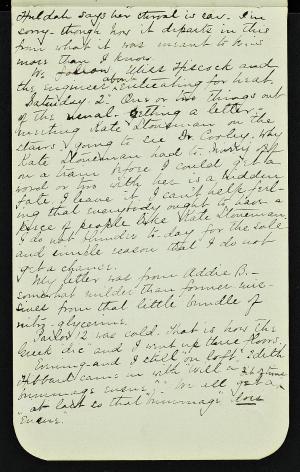 Huldah says her throat is ear. I'm
sorry - though how it departs in this
from what it was meant to be is
more than I know.
We Miss Hiscock and
the engineer about indicating for heat.
Saturday 2. One or two things out
of the usual. Getting a letter -
meeting Kate Stoneman on the
stairs going to see Dr. Corley. Why
Kate Stoneman had to hurry off
on a train before I could get a
word or two with her is a hidden
fate. I leave it. I can't help feel-
ing that everybody ought to have a
piece of people like Kate Stoneman.
I do not blunder to-day for the sole
and simple reason that I do not
get a chance.
My letter was from Addie B. -
somewhat milder than former mis-
sives from that little bundle of
nitro-glycerine.
Parlor 12 was cold. That is how the
Greek div and I went up three floors.
Emming and I still "on loft" Edith
Hibbard came in with "Will a
"rummage ensue?" We all get a
at last so that "rummage" does
"Ensue".